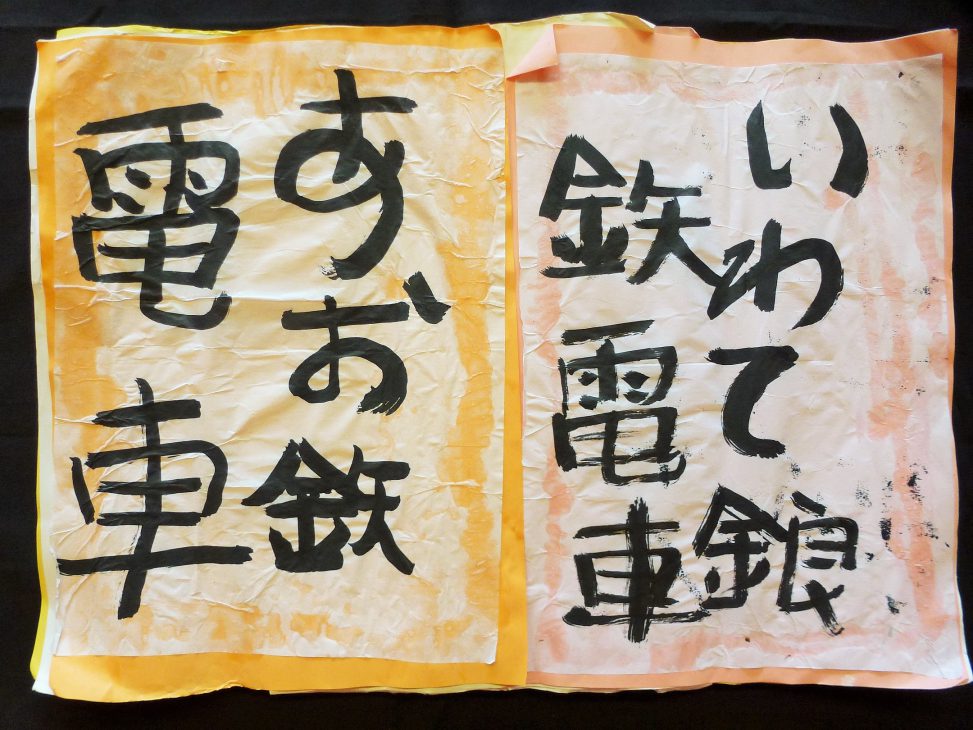 いわて銀
鉄電車
あお鉄
電車